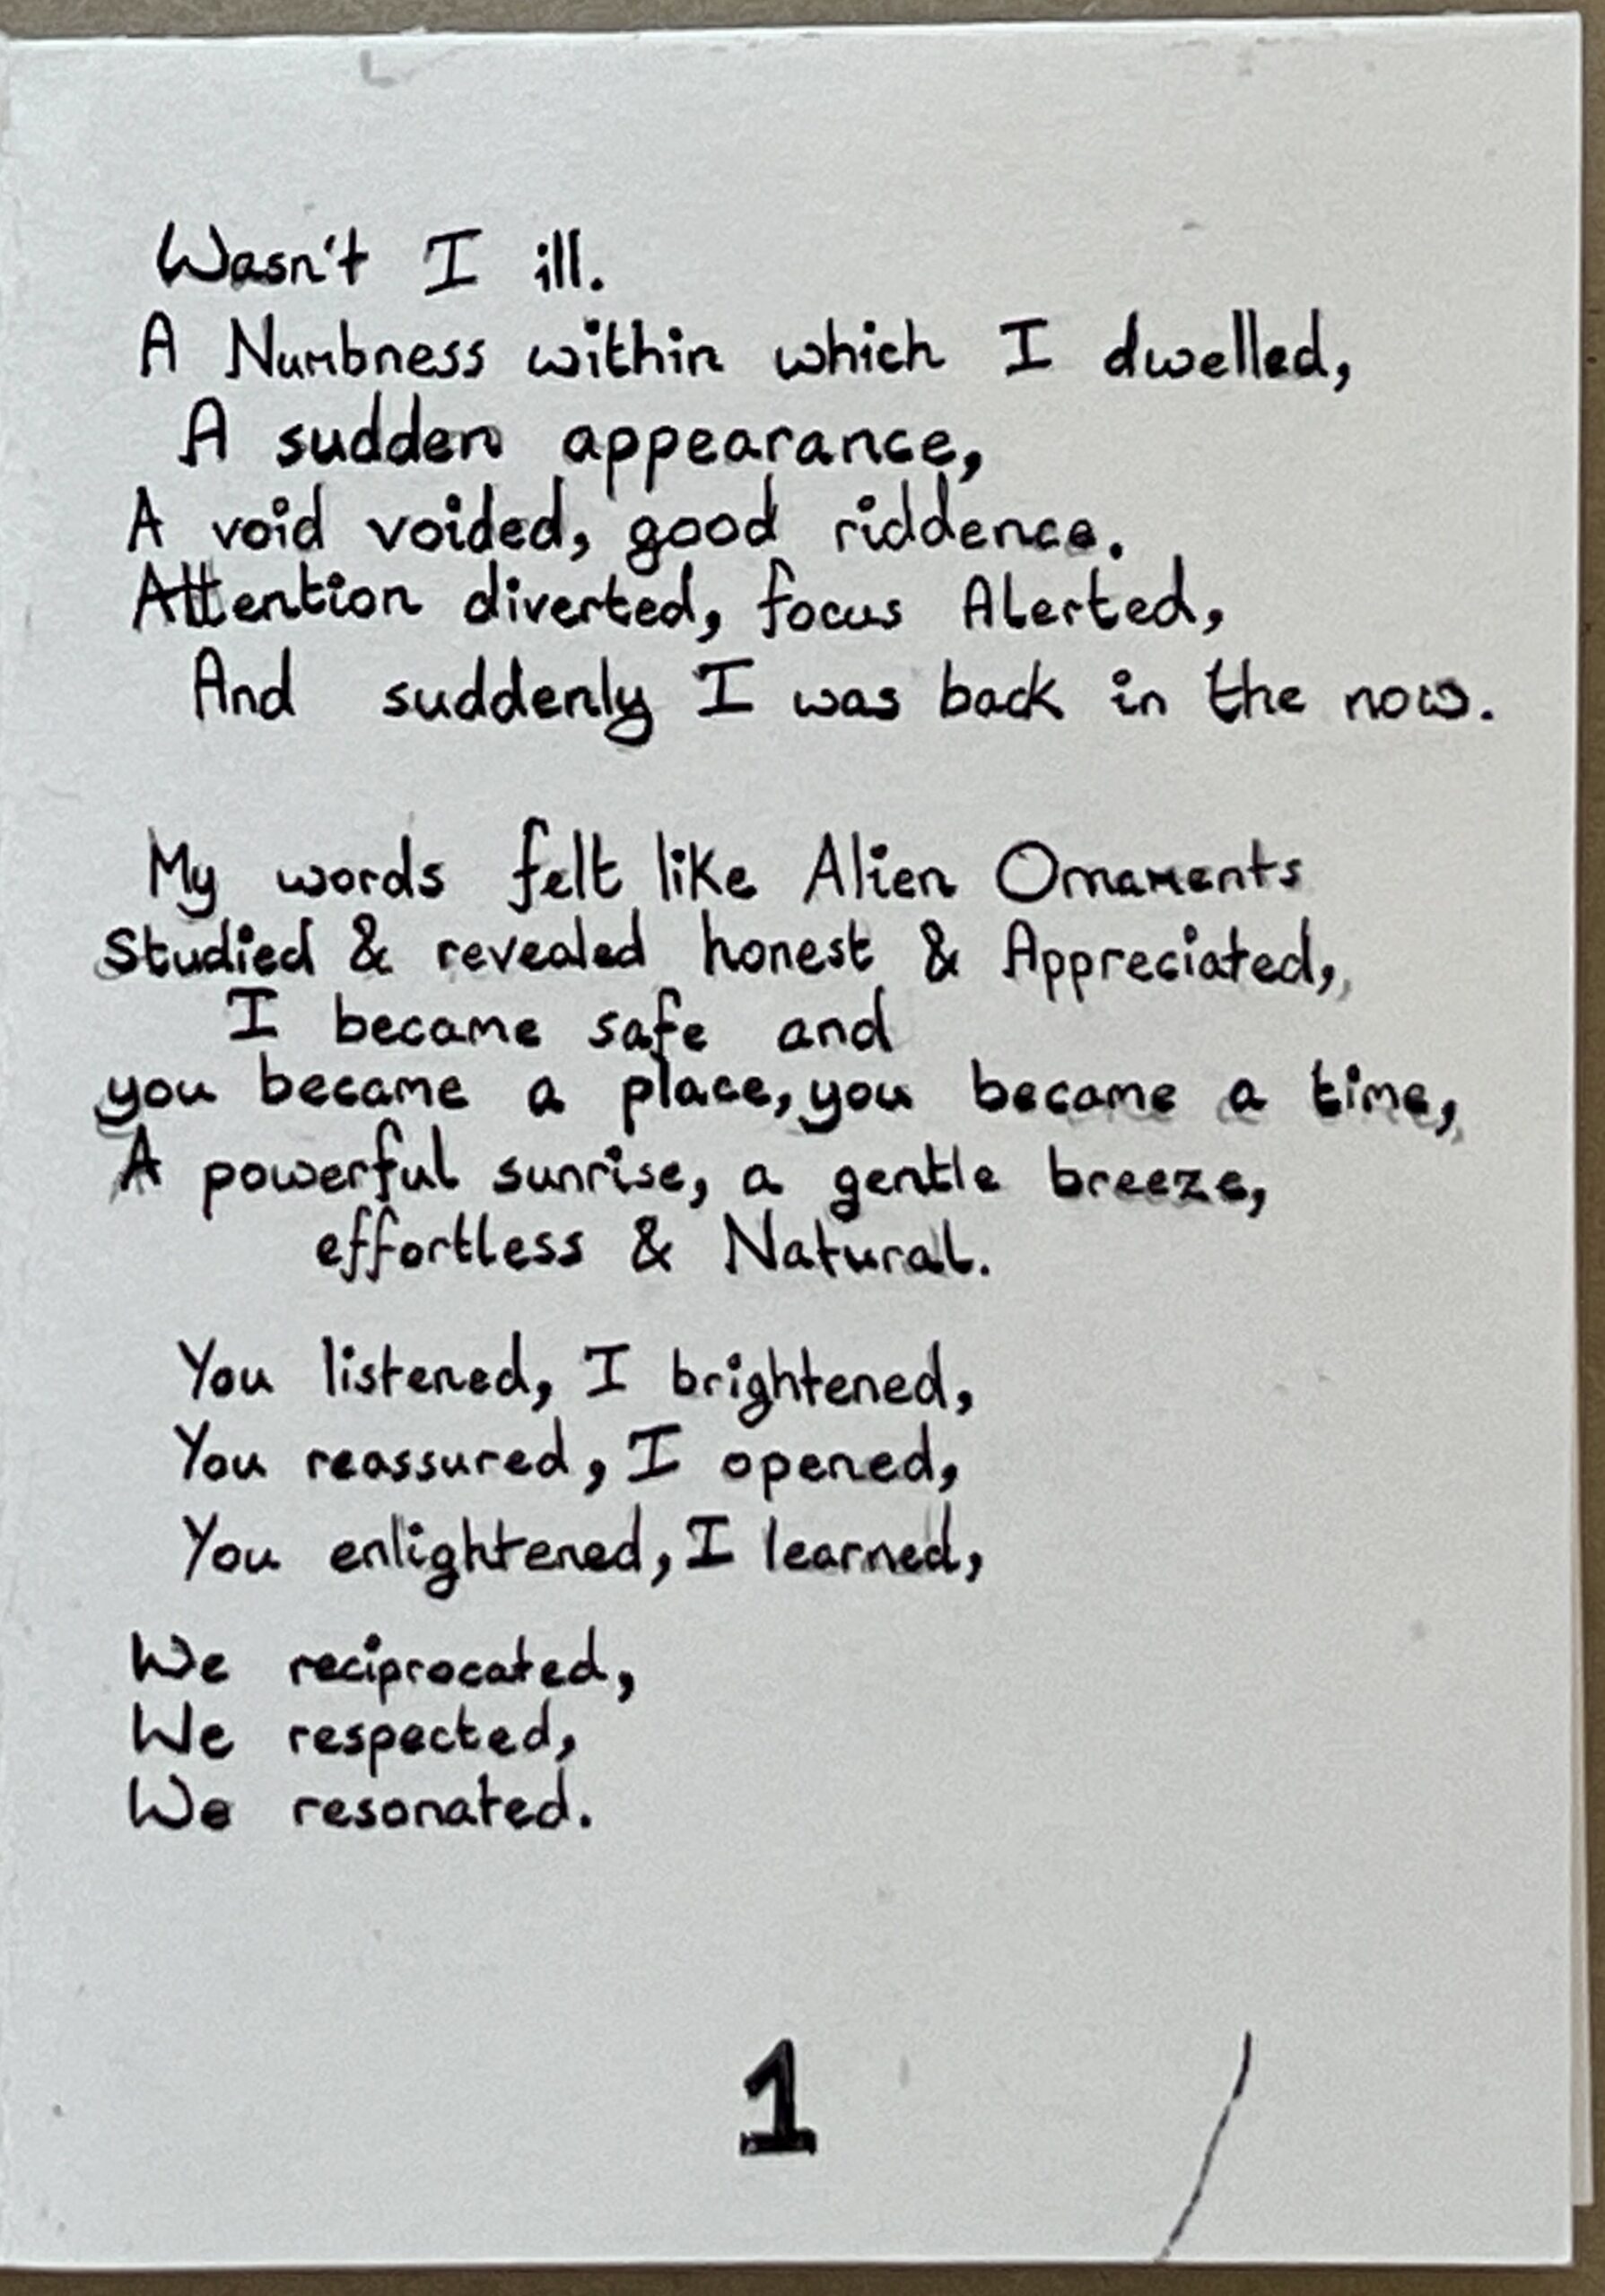 Wasn't I ill.
A Numbness within which I dwelled,
A sudden appearance,
A void voided, good riddence.
Attention diverted, focus Alerted,
And suddenly I was back in the now.
My words felt like Alien Ornaments
Studied & revealed honest & Appreciated,
I became safe and
you became a place, you became a time,
A powerful sunrise, a gentle breeze,
effortless & Natural.
You listened, I brightened,
You reassured, I opened,
You enlightened, I learned,
We reciprocated,
We respected,
We resonated.
1